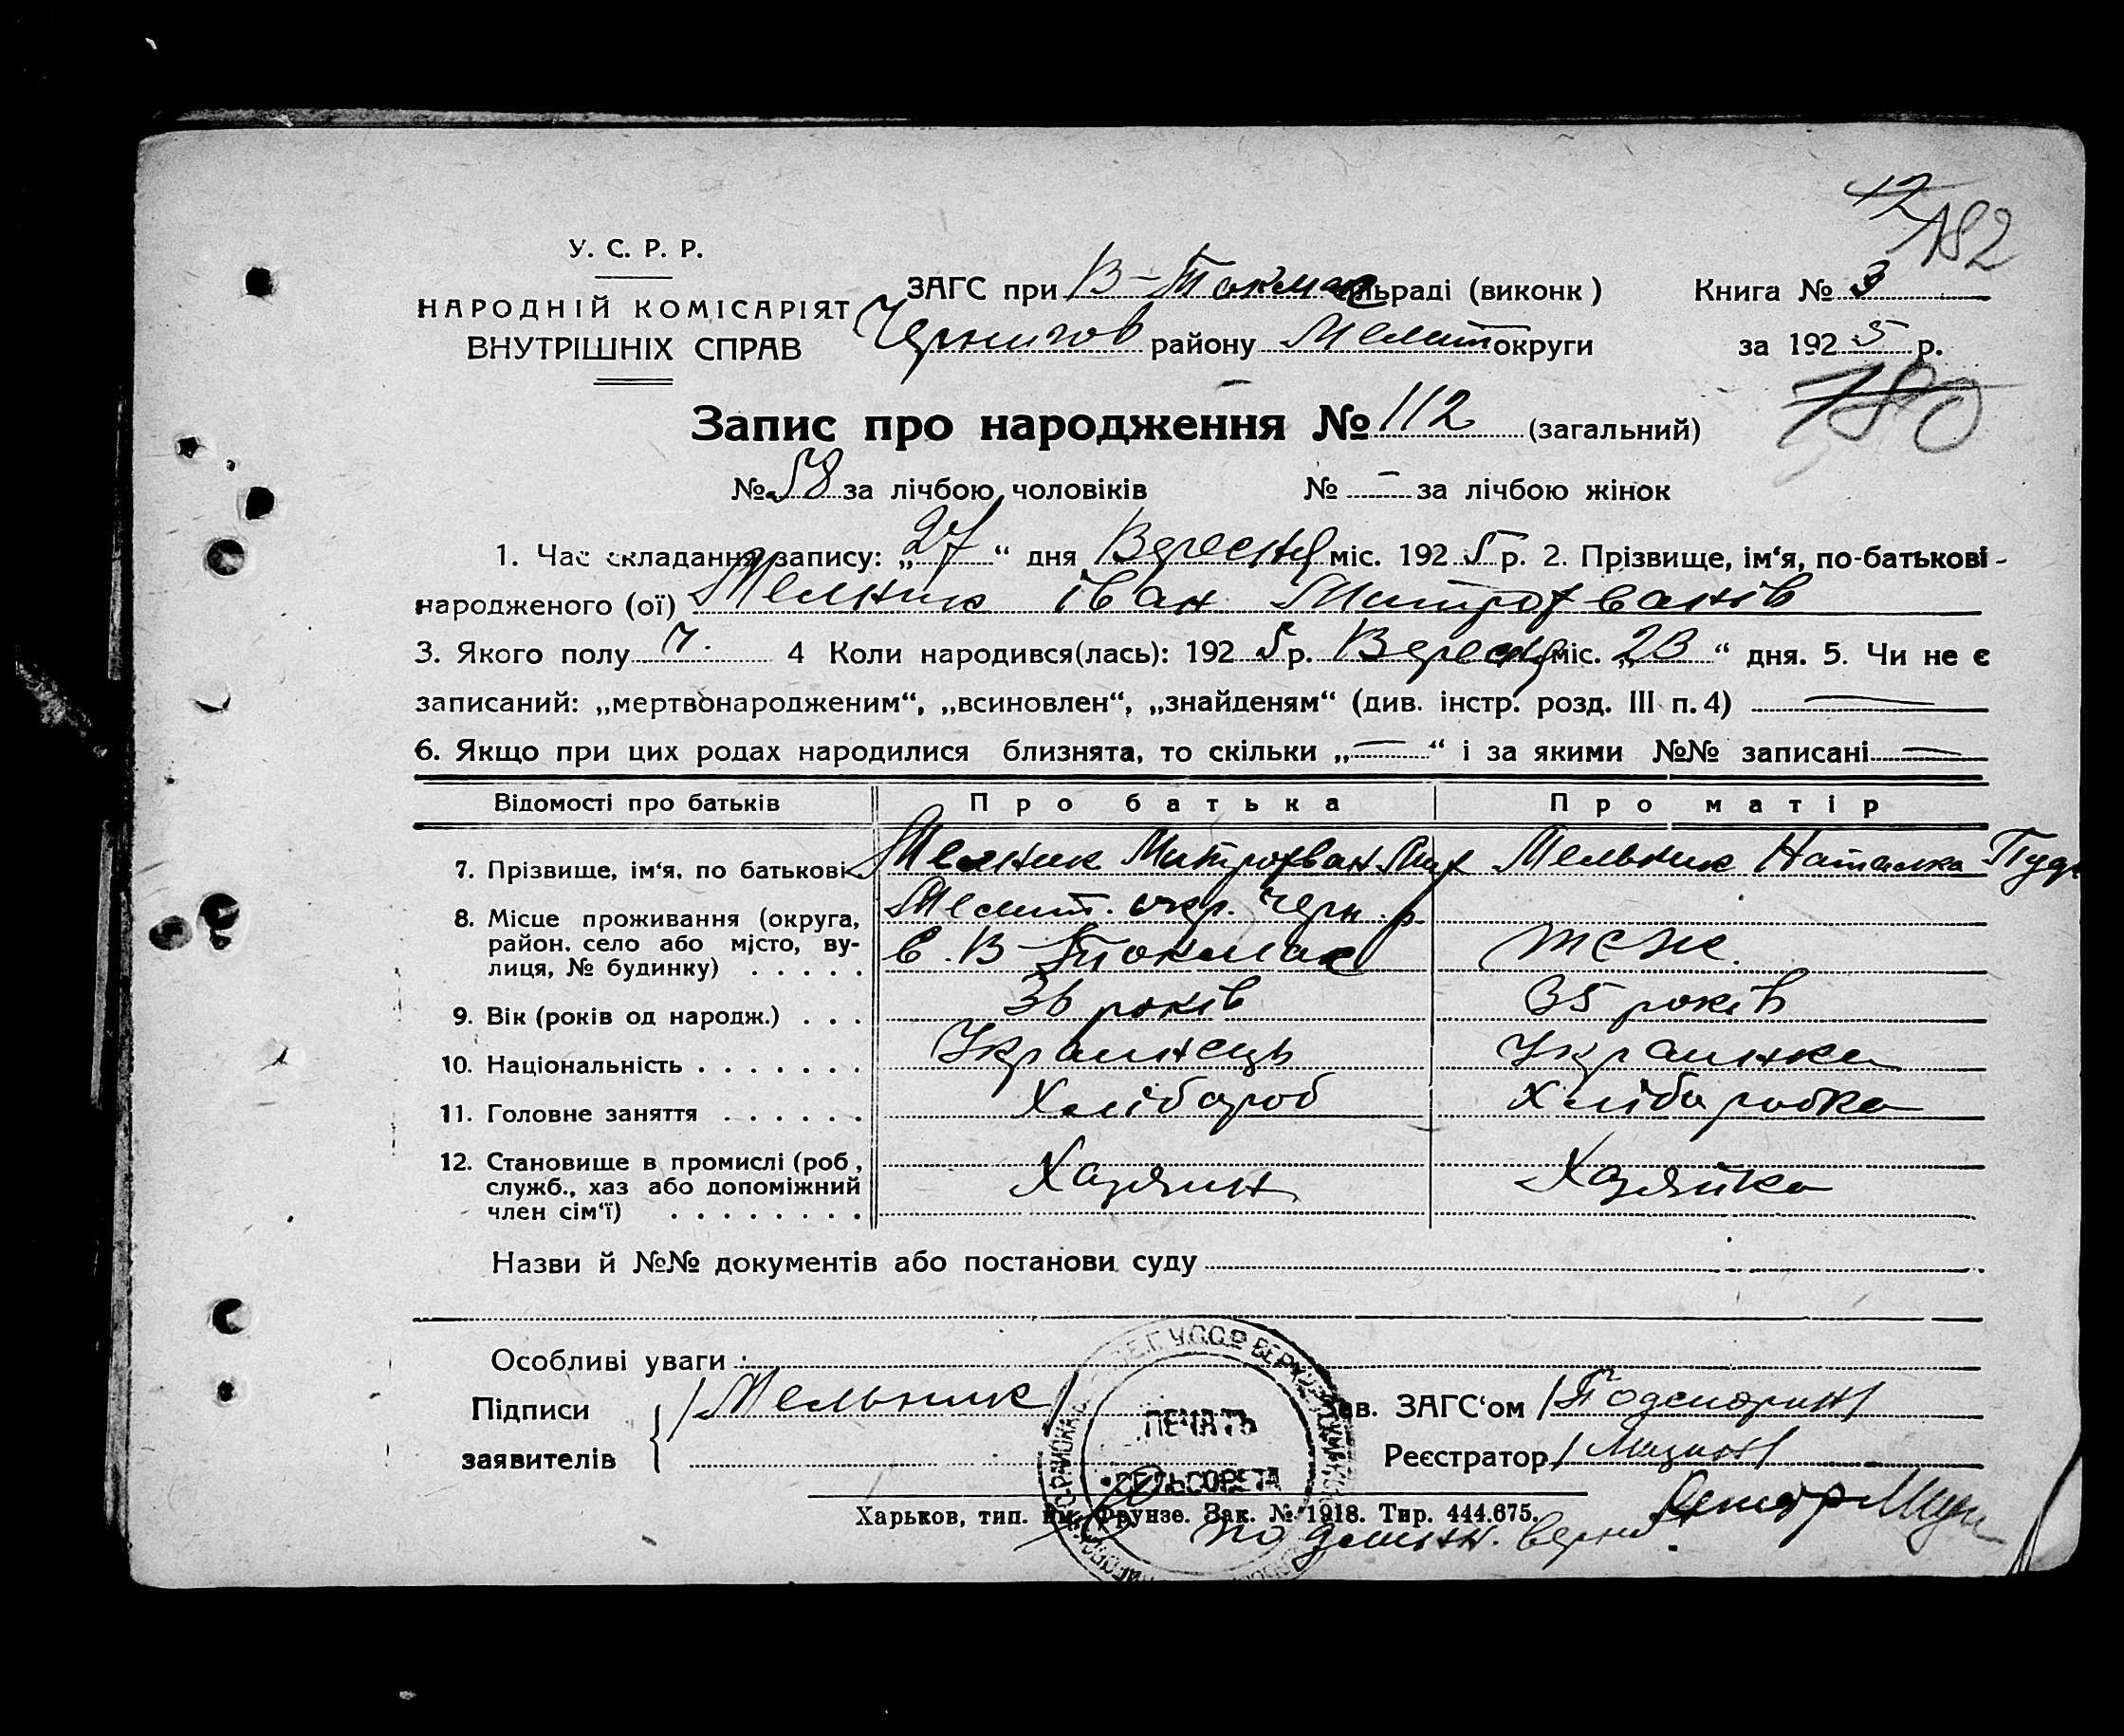 12
182
У. С. Р. Р.
НАРОДНІЙ КОМІСАРІЯТ
ВНУТРІШНІХ СПРАВ
ЗАГС при В-Токмак сільраді (виконк)
Книга № 3
Чернигов району Мелит округи
за 1925 р.
180
Запис про народження № 112 (загальний)
№ 58 за лічбою чоловіків № - за лічбою жінок
1. Час складання запису: „27“ дня Вересня міс. 1925 р. 2. Прізвище, ім‘я, по-батькові-
народженого (ої) Мелник Іван Митрофванів
3. Якого полу ч. 4 Коли народився(лась): 1925 р. Вересня міс. „23“ дня. 5. Чи не є
записаний: „мертвонародженим“, „всиновлен“, „знайденям“ (див. інстр. розд. III п. 4) —
6. Якщо при цих родах народилися близнята, то скільки „—“ і за якими №№ записані —
Відомості про батьків Про батька Про матір
7. Прізвище, ім‘я, по батькові Мелник Митрофван Мельник Наталка
8. Місце проживання (округа, район. село або місто, вулиця, № будинку) . . . . . Мелит. окр. Черн. р. с. В-Токмак теж.
9. Вік (років од народж.) . . . 36 років 35 років
10. Національність . . . . . . . Украинець Украинка
11. Головне заняття . . . . . . Хлібороб Хліборобка
12. Становище в промислі (роб, служб., хаз або допоміжний член сім‘ї) . . . . . . . . Хазяин Хазяйка
Назви й №№ документів або постанови суду
Особливі уваги
Підписи
заявителів
/Мельник/
Зав. ЗАГС‘ом
Реєстратор
ПЕЧАТЬ
СЕЛЬСОВЕТА
Харьков, тип. им. Фрунзе. Зак. № 1918. Тир. 444.675.